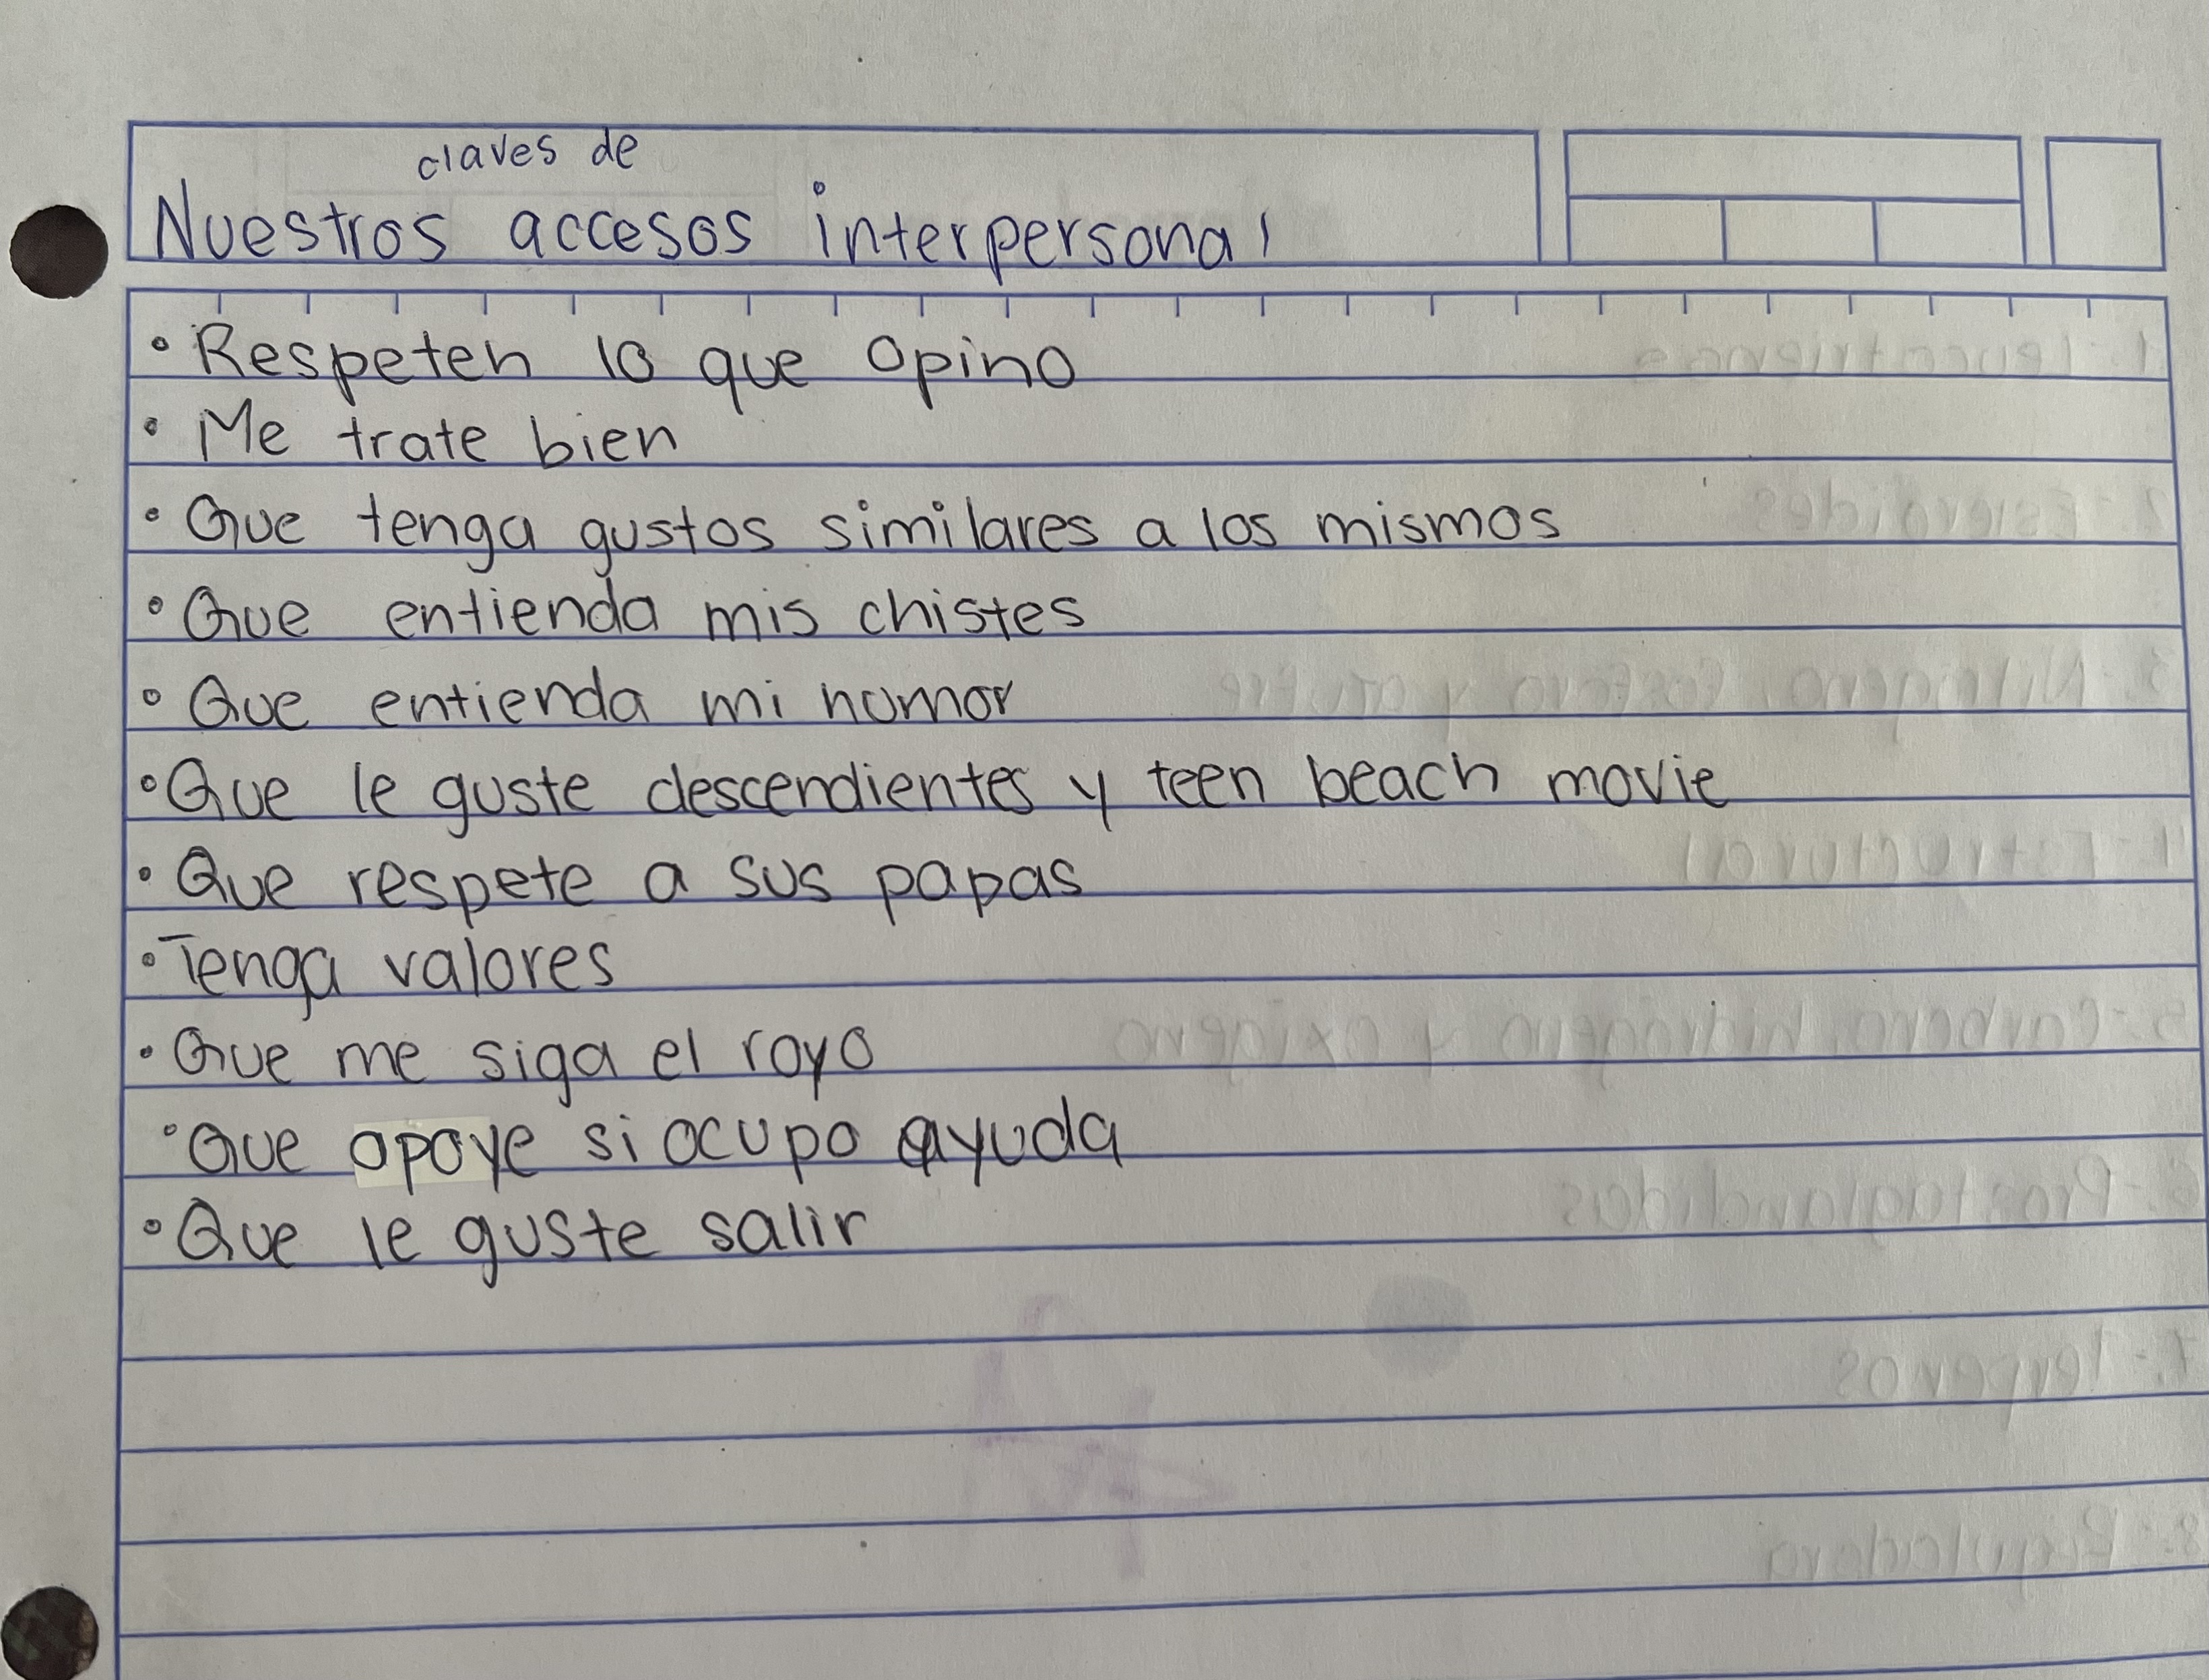 claves de
Nuestros accesos interpersonal
• Respeten lo que opino
• Me trate bien
• Que tenga gustos similares a los mismos
• Que entienda mis chistes
• Que entienda mi humor
• Que le guste descendientes y teen beach movie
• Que respete a sus papas
• Tenga valores
• Que me siga el royo
• Que apoye si ocupo ayuda
• Que le guste salir